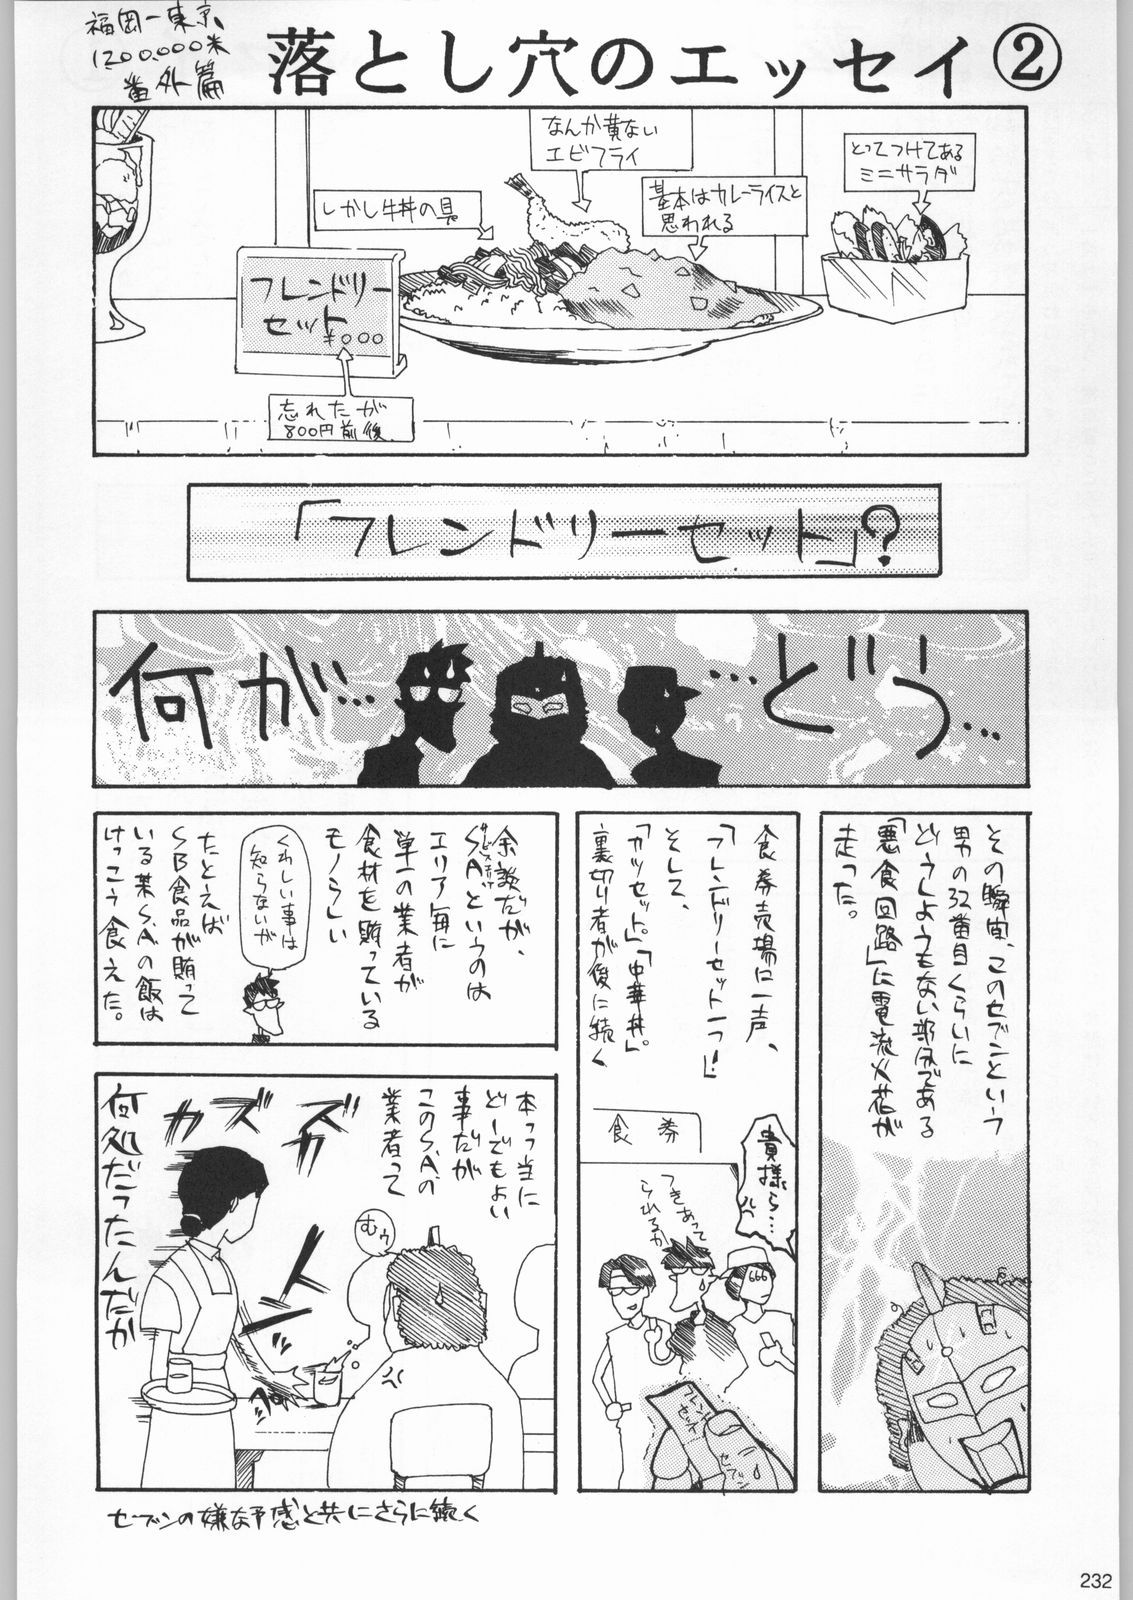 福岡ー東京
1200.000米
番外篇
落とし穴のエッセイ②
なんか貧ない
エビフライ
とってつけてある
ミニサラダ
基本はカレーライスと
思われる
しかし牛丼の具
フレンドリー
セット
¥○○○
忘れたが
800円前後
「フレンドリーセット」?
何が…
…どう…
その瞬間、このセブンという
男の32番目くらいに
どうしようもない部分である
「悪食回路」に電流火花が
走った。
食券売場に一声、
「フレンドリーセット一つ!」
そして、
「カツセット。」「中華丼。」
裏切り者が後に続く
食券
貴様ら…
つきあって
られるか
666
フレンド
セット
セブン
余談だが、
S.A.というのは
エリア毎に
単一の業者が
食材を賄っている
モノらしい
くわしい事は
知らないが
たとえば
SB食品が賄って
いる某S.A.の飯は
けっこう食えた。
本っ当に
どーでもよい
事だが
このS.A.の
業者って
むゥ
ズズズカ
何処だったんだか
セブンの嫌な予感と共にさらに続く
232